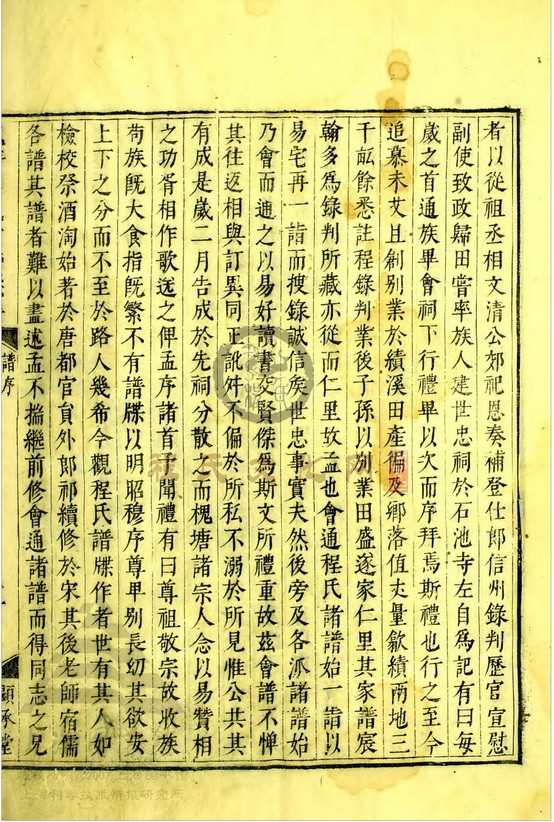 者以從祖丞相文清公郊祀恩奏補登仕郎信州錄判歷官宣慰
副使致政歸田嘗率族人建世忠祠於石池寺左自為記有曰每
歲之首通族畢會祠下行禮畢以次而序拜焉斯禮也行之至今
追慕未艾且創別業於績溪田產徧及鄉落值丈量歙績兩地三
千畝餘悉註程錄判業後子孫以別業田盛遂家仁里其家譜宸
翰多為錄判所藏亦從而仁里故孟也會通程氏諸譜始一詣以
易宅再一詣而搜錄誠信族世忠事實夫然後旁及各派諸譜始
乃會而通之以易好讀書交賢傑為斯文所禮重故茲會譜不憚
其往返相與訂異同正訛舛不偏於所私不溺於所見惟公共其
有成是歲二月告成於先祠分散之而槐塘諸宗人念以易贊相
之功胥相作歌送之俾孟序諸首予聞禮有曰尊祖敬宗故收族
苟族既大食指既繁不有譜牒以明昭穆序尊卑別長幼其欲安
上下之分而不至於路人幾希今觀程氏譜牒作者世有其人如
檢校祭酒淘始著於唐都官員外郎祁續修於宋其後老師宿儒
各譜其譜者難以盡述孟不揣繼前修會通諸譜而得同志之兄
譜序
顯承堂
程氏文化网